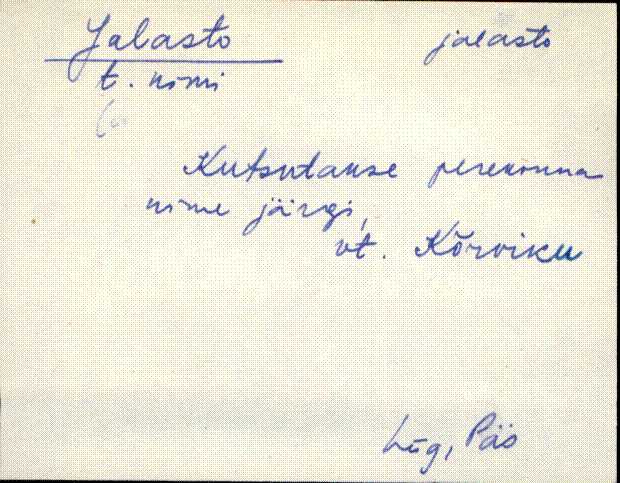 Jalasto jalasto
t. nimi
Kutsutakse perekonna
nime järgi,
vt. Kõrviku
Lüg, Päs